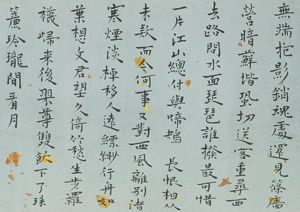 無端抱影銷魂處還見篠牆
螢暗蘚階蛩切送客重尋西
去路問水面琵琶誰撥最可惜
一片江山總付與啼鴂 長恨相從
未款而今何事又對西風離別渚
寒煙淡棹移人遠縹緲行舟如
葉想文君望久倚竹愁生步羅
襪歸來後翠尊雙飲下了珠
簾玲瓏閒看月